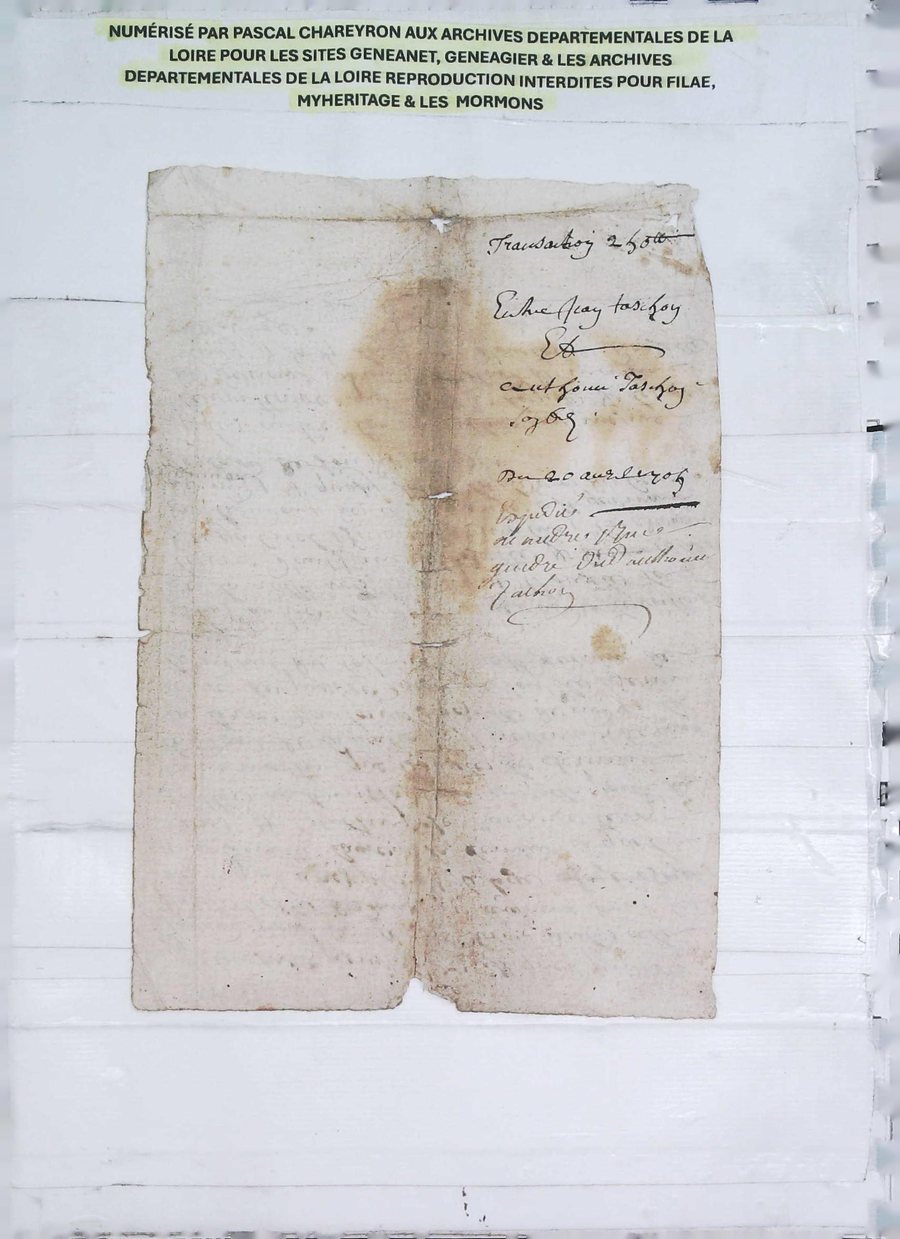 NUMÉRISÉ PAR PASCAL CHAREYRON AUX ARCHIVES DEPARTEMENTALES DE LA
LOIRE POUR LES SITES GENEANET, GENEAGIER & LES ARCHIVES
DEPARTEMENTALES DE LA LOIRE REPRODUCTION INTERDITES POUR FILAE,
MYHERITAGE & LES MORMONS
Transaction
Entre Jean taschon
Et
anthoine Taschon
Du 20 avril 1705
Expedié
gendre dud anthoine
Tachon